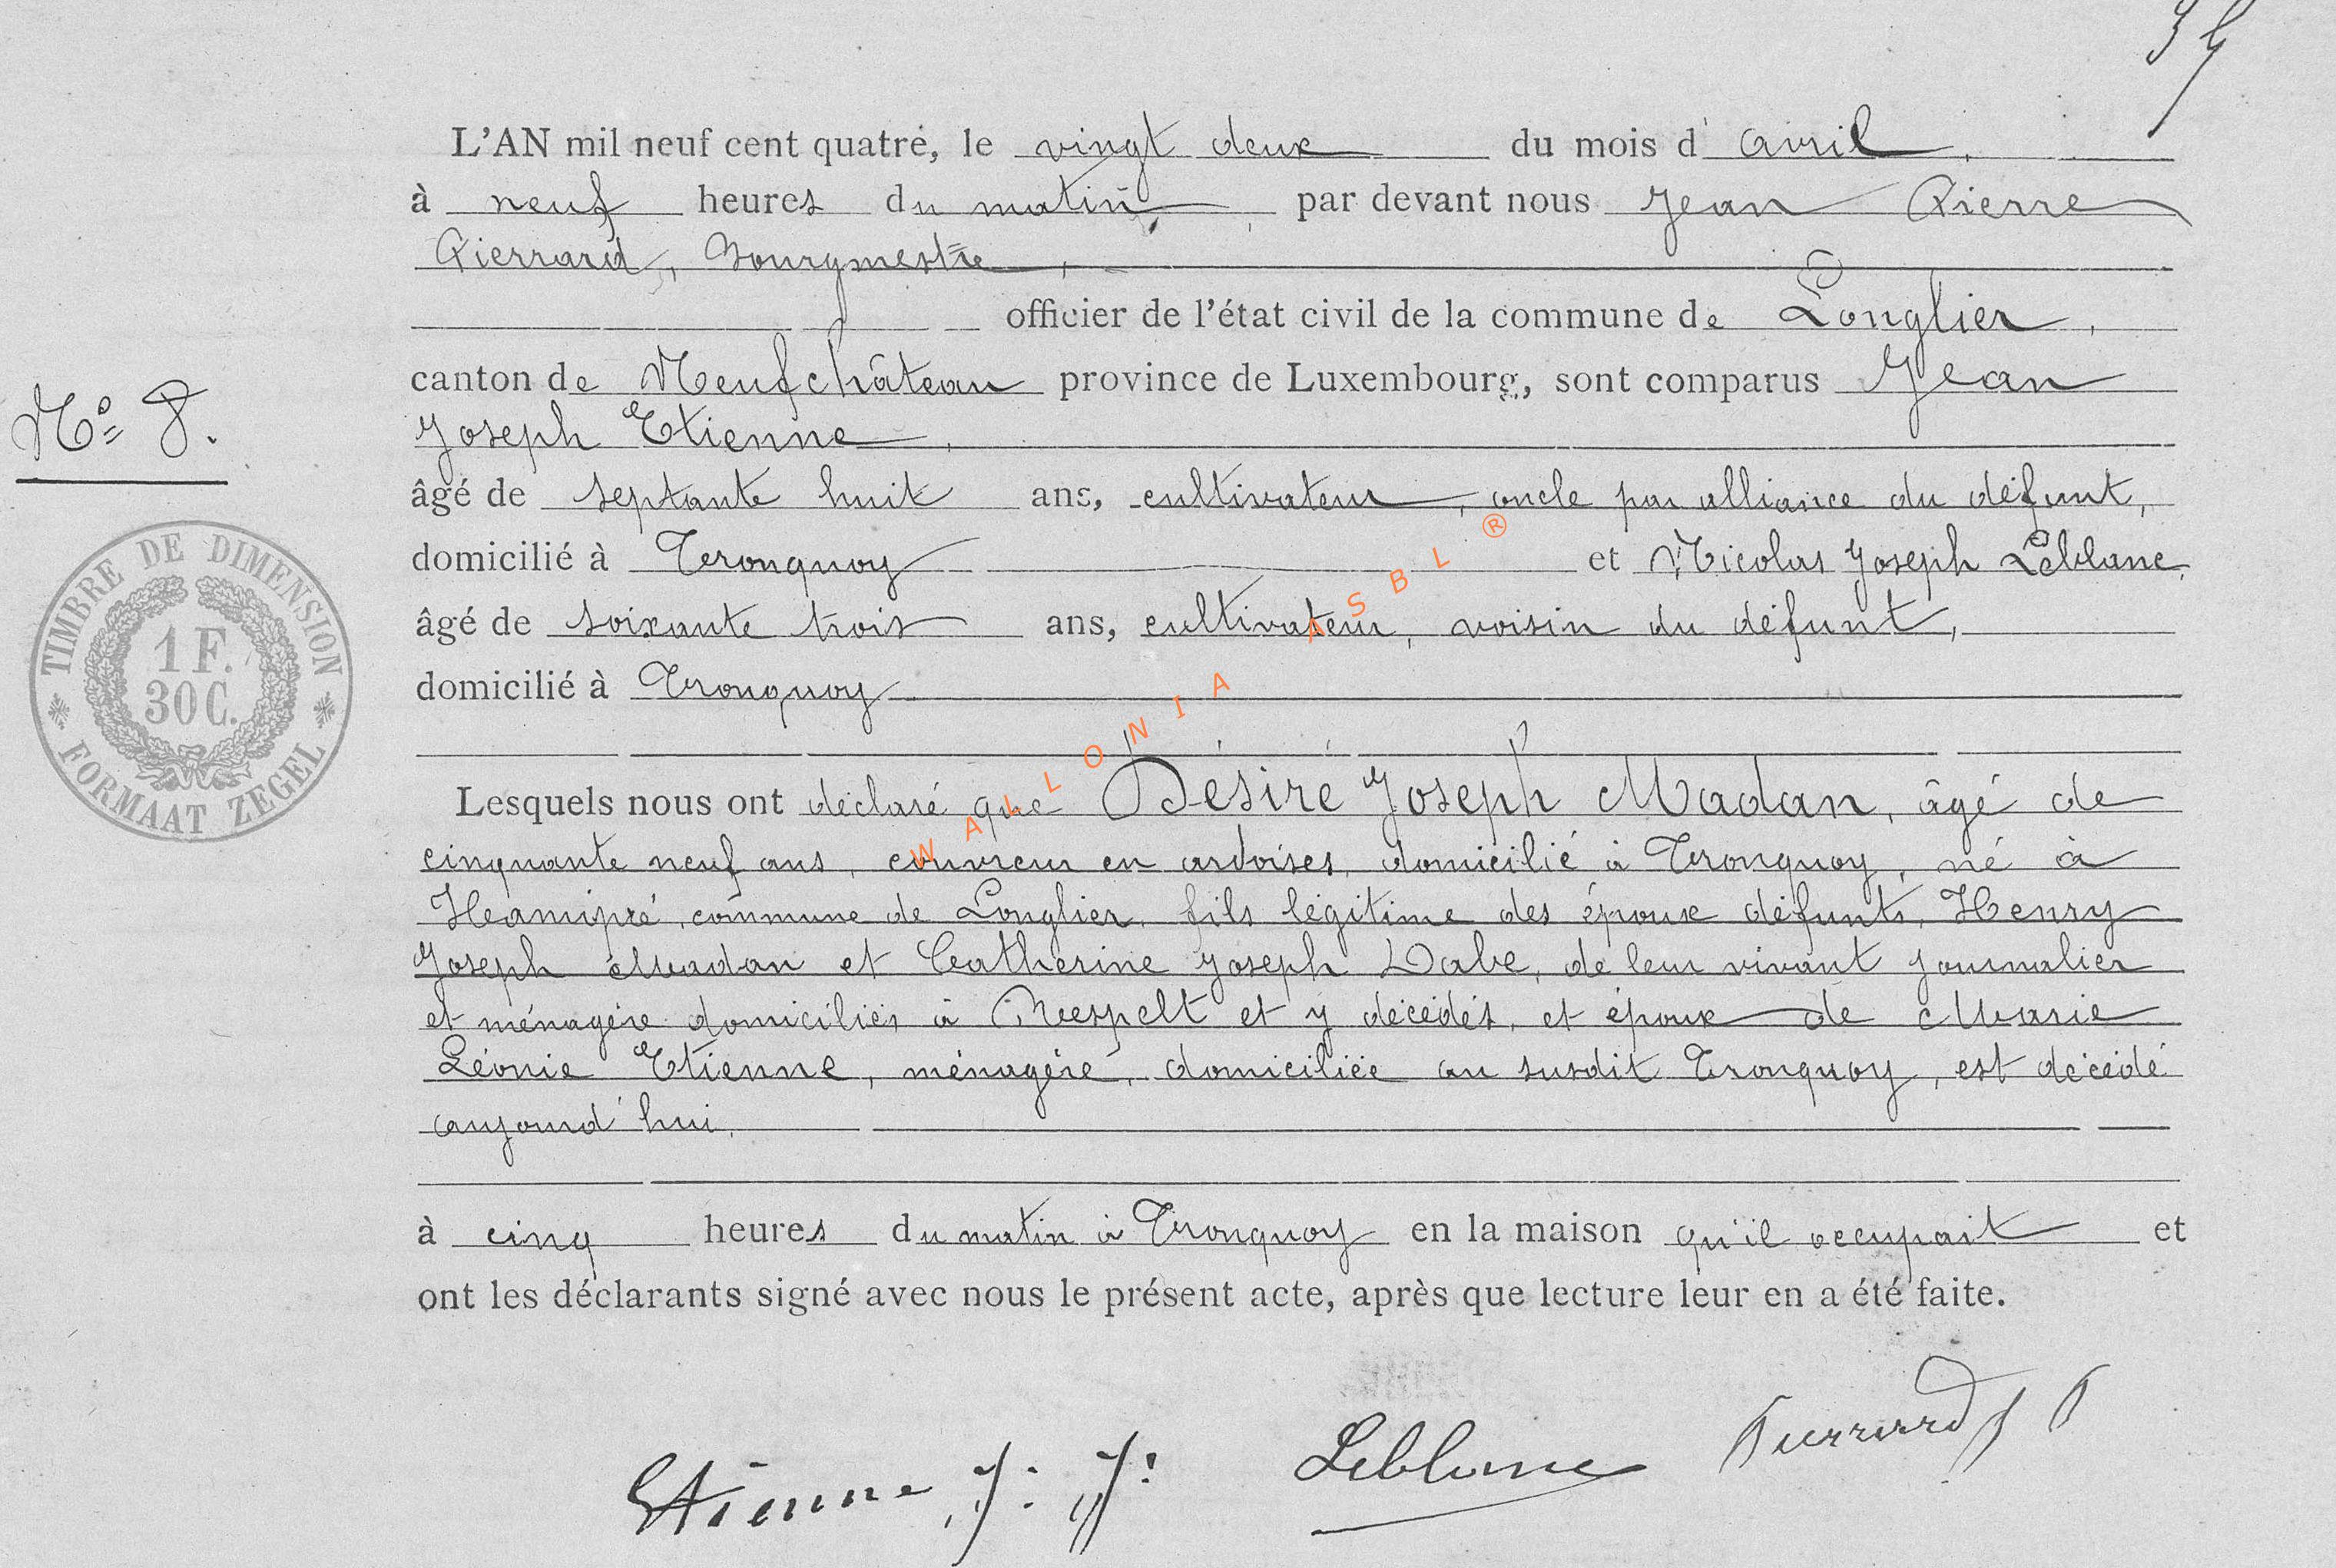 L'AN mil neuf cent quatre, le vingt deux du mois d'avril,
à neuf heures du matin, par devant nous Jean Pierre
Pierrard, Bourgmestre,
officier de l'état civil de la commune de Longlier,
canton de Neufchâteau province de Luxembourg, sont comparus Jean
Joseph Etienne,
N° 8.
âgé de septante huit ans, cultivateur, oncle par alliance du défunt,
domicilié à Tronquoy et Nicolas Joseph Leblanc,
âgé de soixante trois ans, cultivateur, voisin du défunt,
domicilié à Tronquoy
TIMBRE DE DIMENSION
1 F.
30 C.
FORMAAT ZEGEL
WALLONIA ASBL ®
Lesquels nous ont déclaré que Désiré Joseph Madan, âgé de
cinquante neuf ans, couvreur en ardoises, domicilié à Tronquoy, né à
Hamipré, commune de Longlier, fils légitime des époux défunts, Henry
Joseph Madan et Catherine Joseph Dabe, de leur vivant journalier
et ménagère domiciliés à Respelt et y décédés, et époux de Marie
Léonie Etienne, ménagère, domiciliée au susdit Tronquoy, est décédé
aujourd'hui,
à cinq heures du matin à Tronquoy en la maison qu'il occupait et
ont les déclarants signé avec nous le présent acte, après que lecture leur en a été faite.
Etienne, J: J:
Leblanc
Pierrard J P